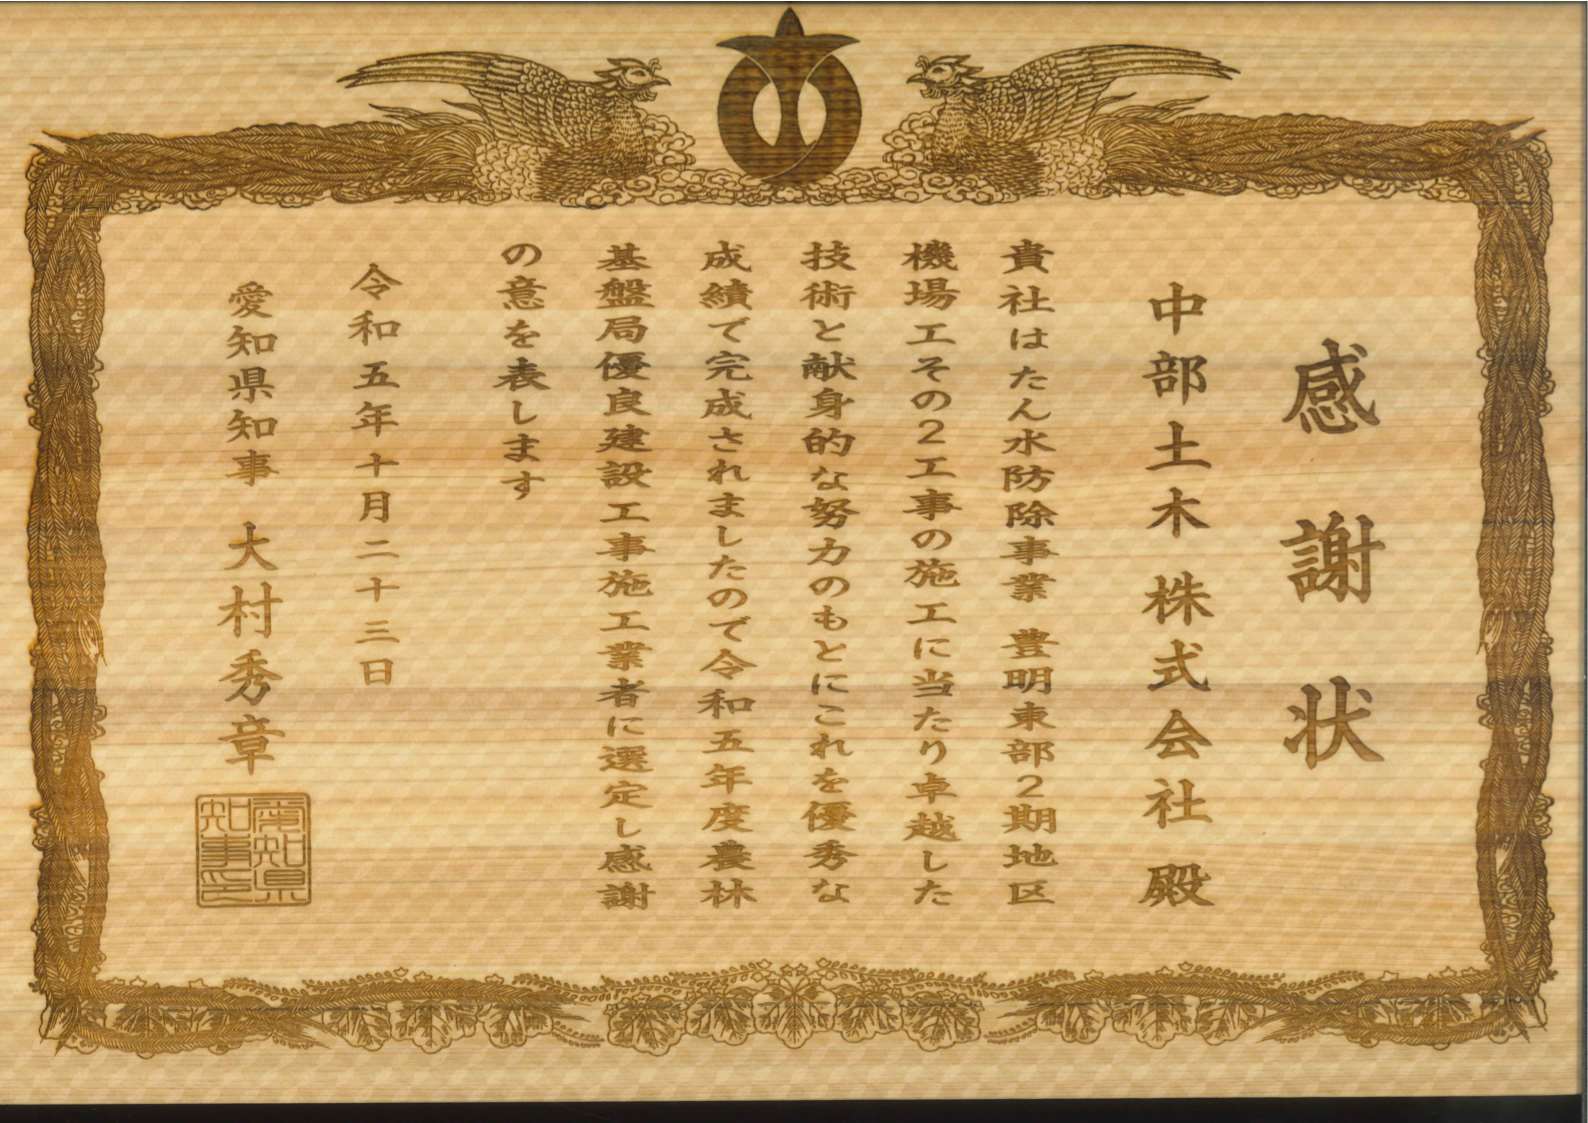 感謝状
中部土木株式会社殿
貴社はたん水防除事業 豊明東部2期地区
機場工その2工事の施工に当たり卓越した
技術と献身的な努力のもとにこれを優秀な
成績で完成されましたので令和五年度農林
基盤局優良建設工事施工業者に選定し感謝
の意を表します
令和五年十月二十三日
愛知県知事 大村秀章
愛知県
知事印